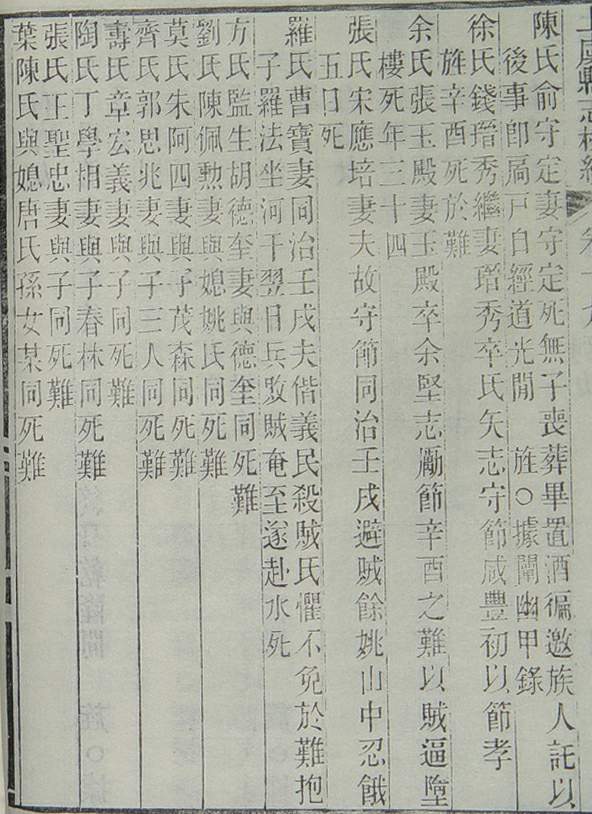 上虞縣志校續
陳氏俞守定妻守定死無子喪葬畢置酒徧邀族人託以
後事卽扃戸自經道光閒 旌○據闡幽甲錄
徐氏錢瑨秀繼妻瑨秀卒氏矢志守節咸豐初以節孝
旌辛酉死於難
余氏張玉殿妻玉殿卒余堅志勵節辛酉之難以賊逼墮
樓死年三十四
張氏宋應培妻夫故守節同治壬戌避賊餘姚山中忍餓
五日死
羅氏曹寶妻同治壬戌夫偕義民殺賊氏懼不免於難抱
子羅法坐河干翌日兵敗賊奄至遂赴水死
方氏監生胡德奎妻與德奎同死難
劉氏陳佩勲妻與媳姚氏同死難
莫氏朱阿四妻與子茂森同死難
齊氏郭思兆妻與子三人同死難
壽氏章宏義妻與子同死難
陶氏丁學相妻與子春林同死難
張氏王聖忠妻與子同死難
葉陳氏與媳唐氏孫女某同死難